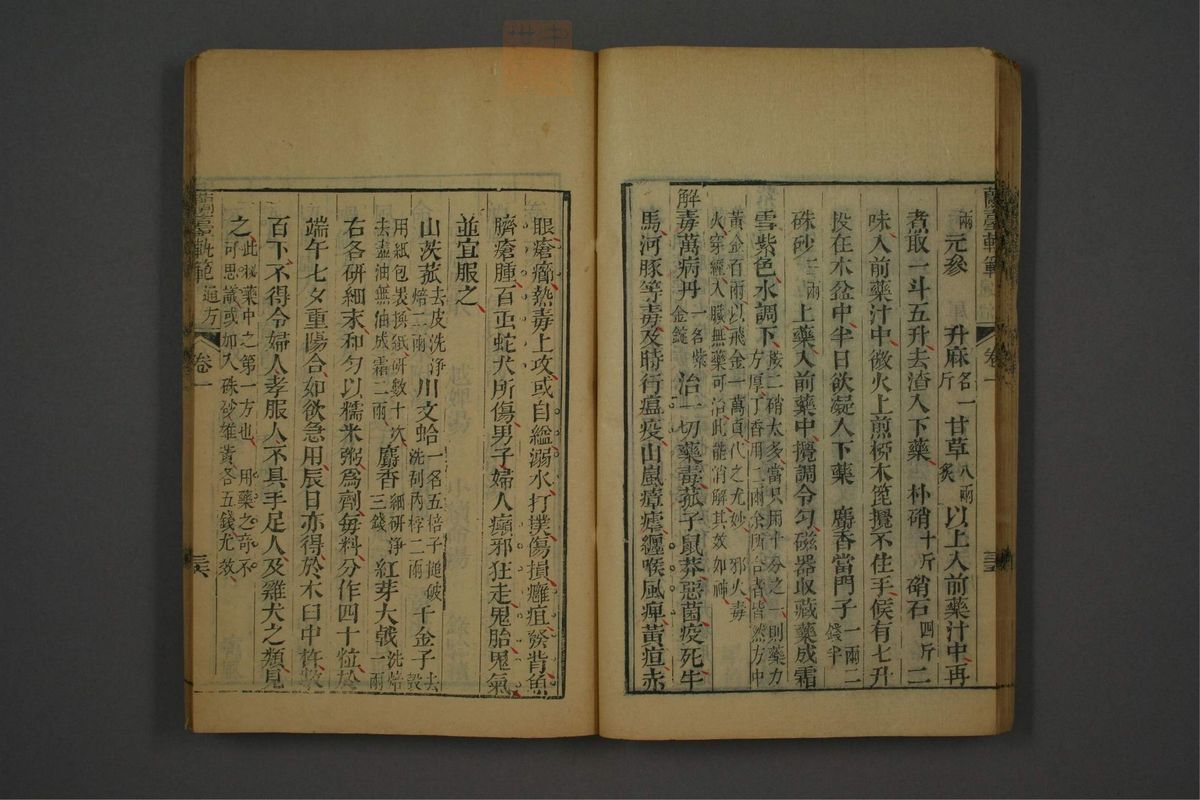 蘭臺軌範
卷一
三五
兩 元參 升麻各一斤 甘草八兩炙 以上入前藥汁中再
煮取一斗五升去渣入下藥 朴硝十斤 硝石四斤 二
味入前藥汁中微火上煎柳木篦攪不住手候有七升
投在木盆中半日欲凝入下藥 麝香當門子一兩二錢半
硃砂二兩 上藥入前藥中攪調令勻磁器收藏藥成霜
雪紫色水調下 按二硝太多當只用十分之一則藥力方厚丁香用二兩余所合者皆然方中
黃金百兩以飛金一萬頁代之尤妙 邪火毒火穿經入臟無藥可治此能消解其效如神
解毒萬病丹一名紫金錠 治一切藥毒菰子鼠莽惡菌疫死牛
馬河豚等毒及時行瘟疫山嵐瘴瘧纏喉風痺黃疸赤
眼瘡癤熱毒上攻或自縊溺水打撲傷損癰疽發背魚
臍瘡腫百䖝蛇犬所傷男子婦人癲邪狂走鬼胎鬼氣
並宜服之
山茨菰去皮洗淨焙二兩 川文蛤一名五倍子搥破洗刮內桴二兩 千金子去殼
用紙包裹換紙研數十次去盡油無油成霜二兩 麝香細研淨三錢 紅芽大戟洗焙一兩
右各研細末和勻以糯米粥爲劑每料分作四十粒於
端午七夕重陽合如欲急用辰日亦得於木臼中杵數
百下不得令婦人孝服人不具手足人及雞犬之類見
之 此秘藥中之第一方也 用藥之奇不可思議或加入硃砂雄黃各五錢尤效
蘭臺軌範 通方
卷一
三六